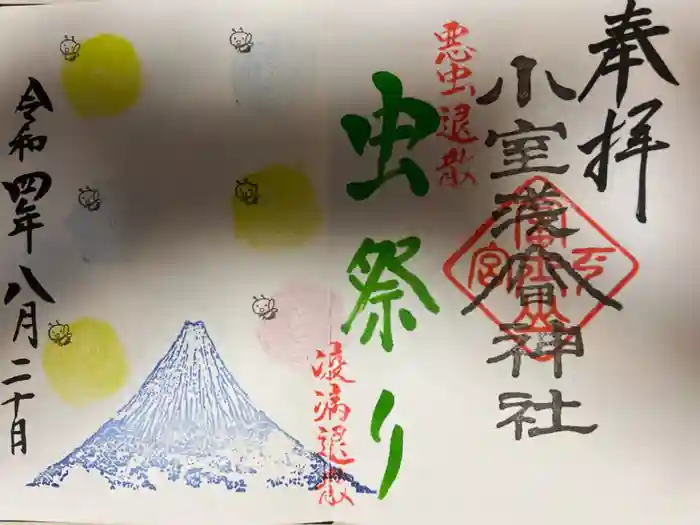 奉拝
小室浅間神社
悪虫退散
虫祭り
疫満退散
令和四年八月二十日